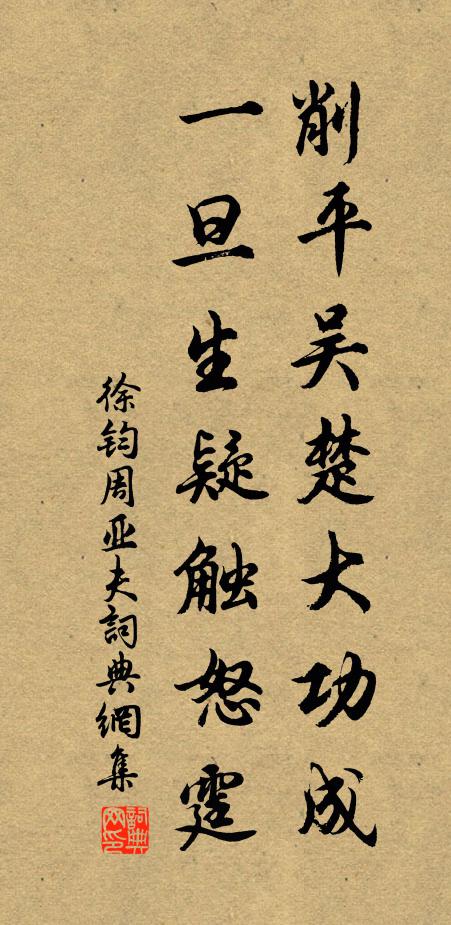 削平吴楚大功成
一旦生疑触怒霆
徐钧周亚夫詞典網集
詞典网印